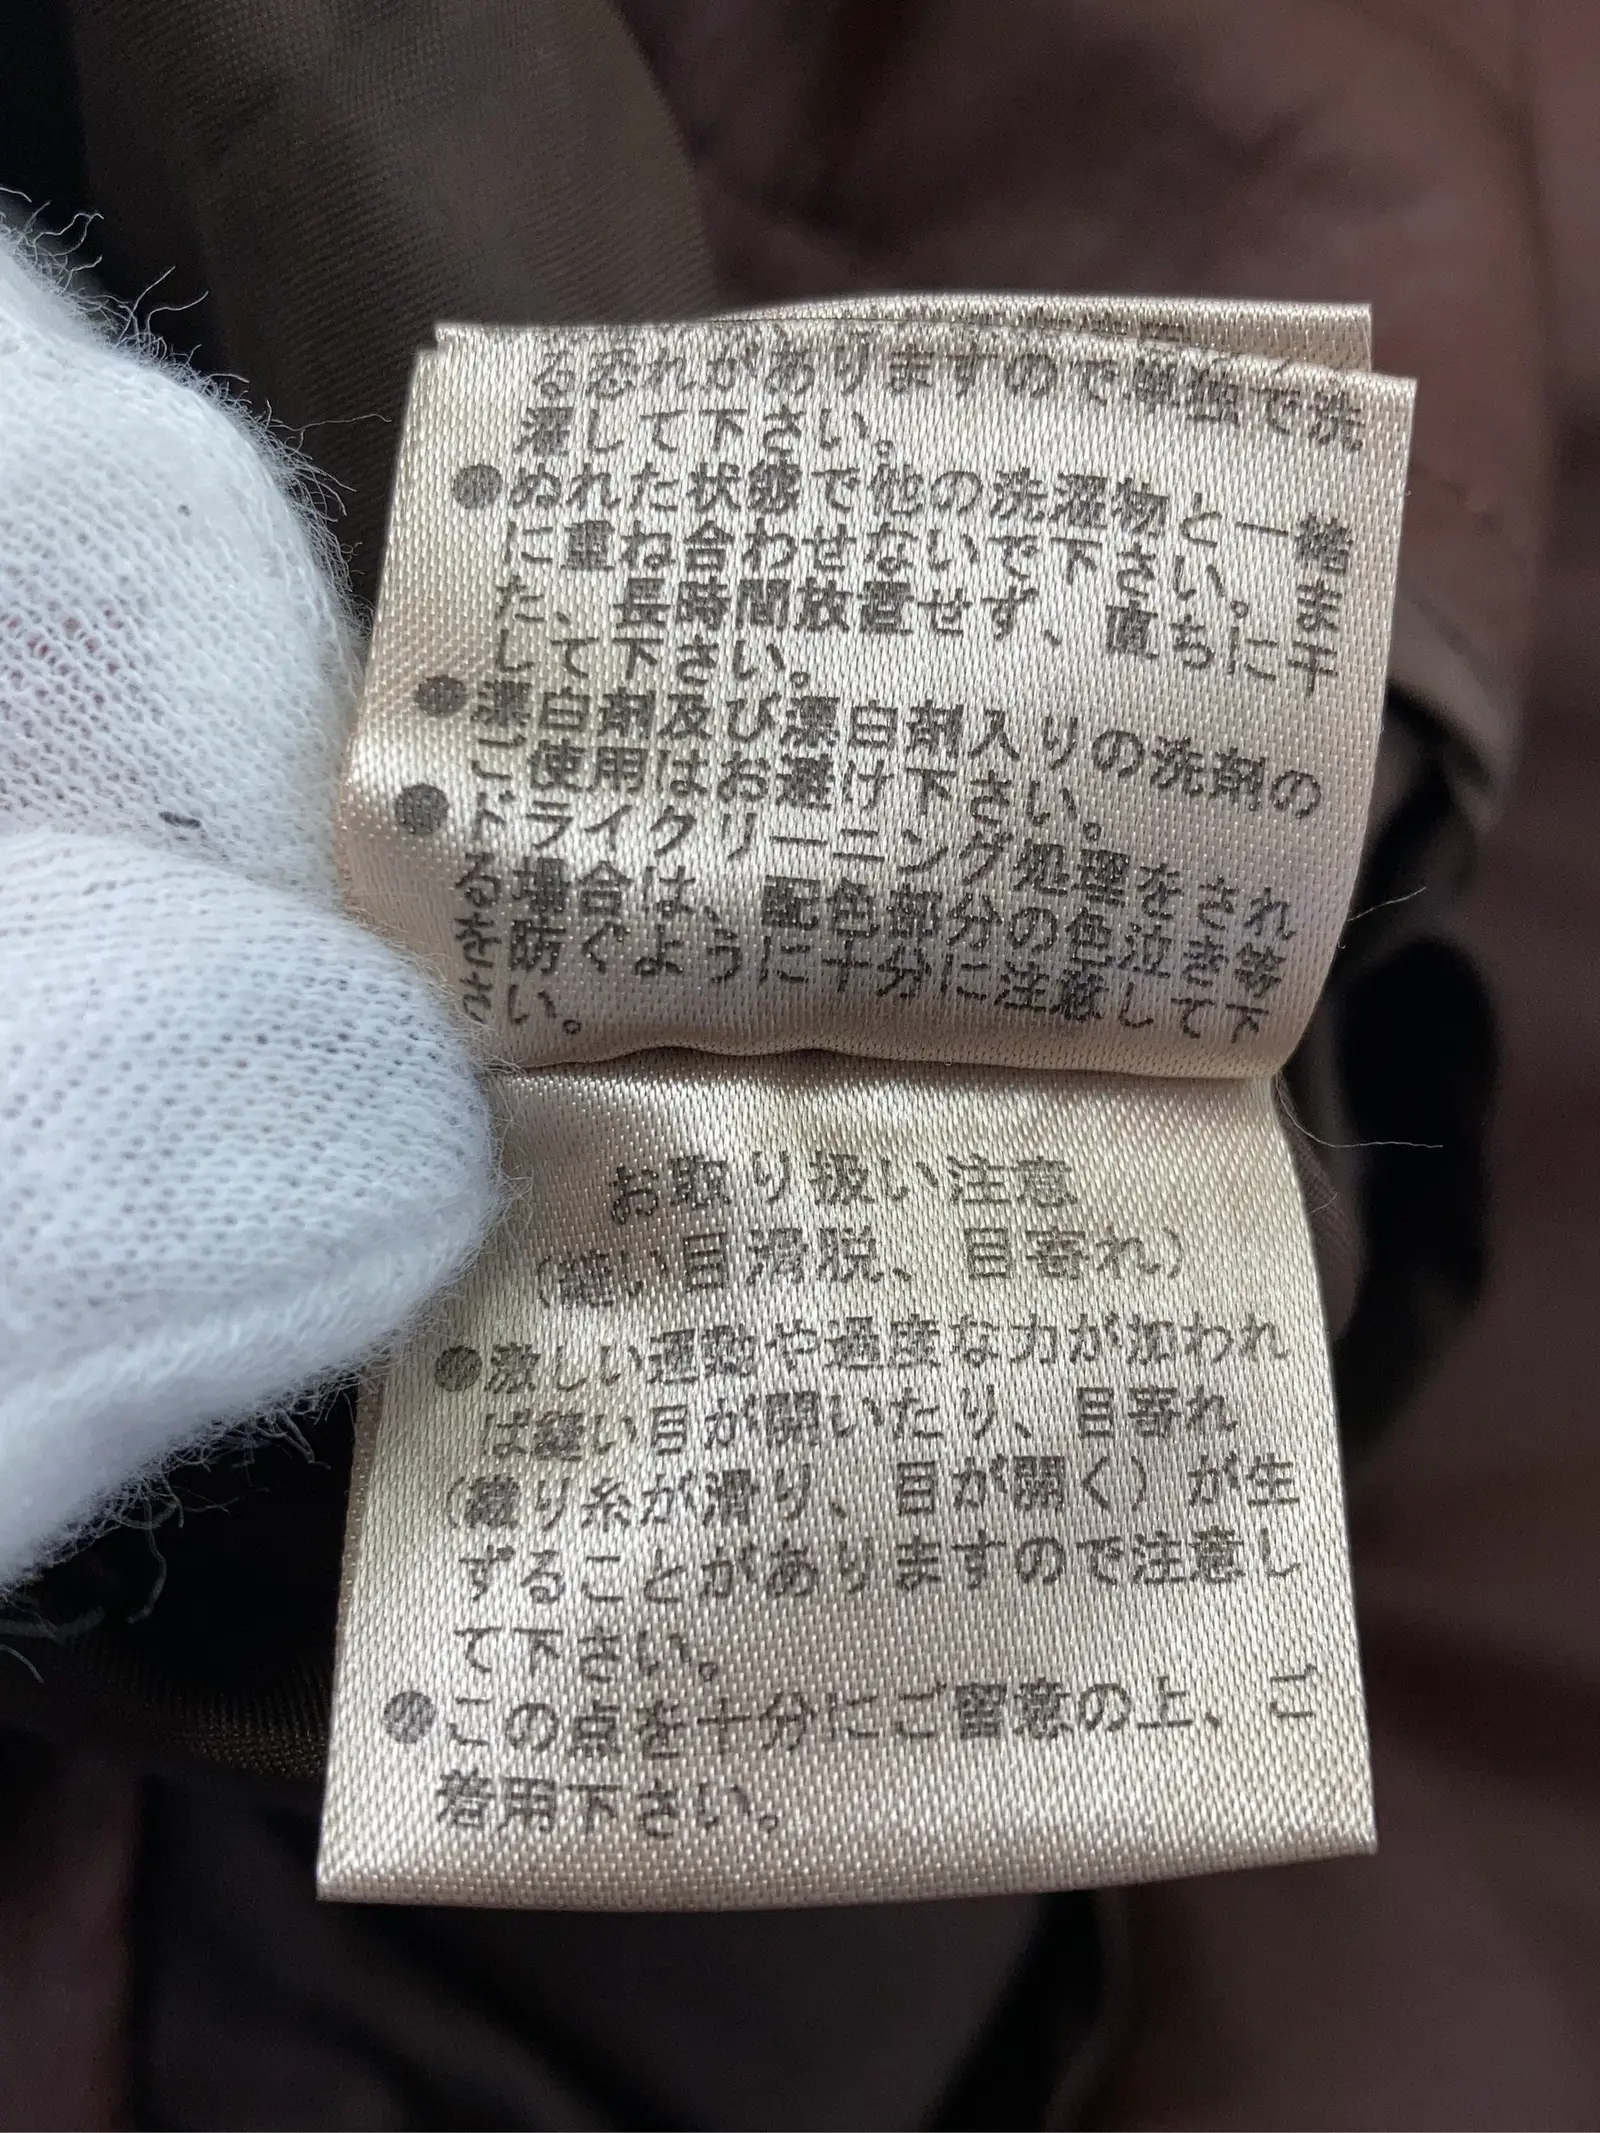 る恐れがありますので単独で洗
濯して下さい。
●ぬれた状態で他の洗濯物と一緒
に重ね合わせないで下さい。ま
た、長時間放置せず、直ちに干
して下さい。
●漂白剤及び漂白剤入りの洗剤の
ご使用はお避け下さい。
●ドライクリーニング処理をされ
る場合は、配色部分の色泣き等
を防ぐように十分に注意して下
さい。
お取り扱い注意
(縫い目滑脱、目寄れ)
●激しい運動や過度な力が加われ
ば縫い目が開いたり、目寄れ
(織り糸が滑り、目が開く)が生
ずることがありますので注意し
て下さい。
●この点を十分にご留意の上、ご
着用下さい。